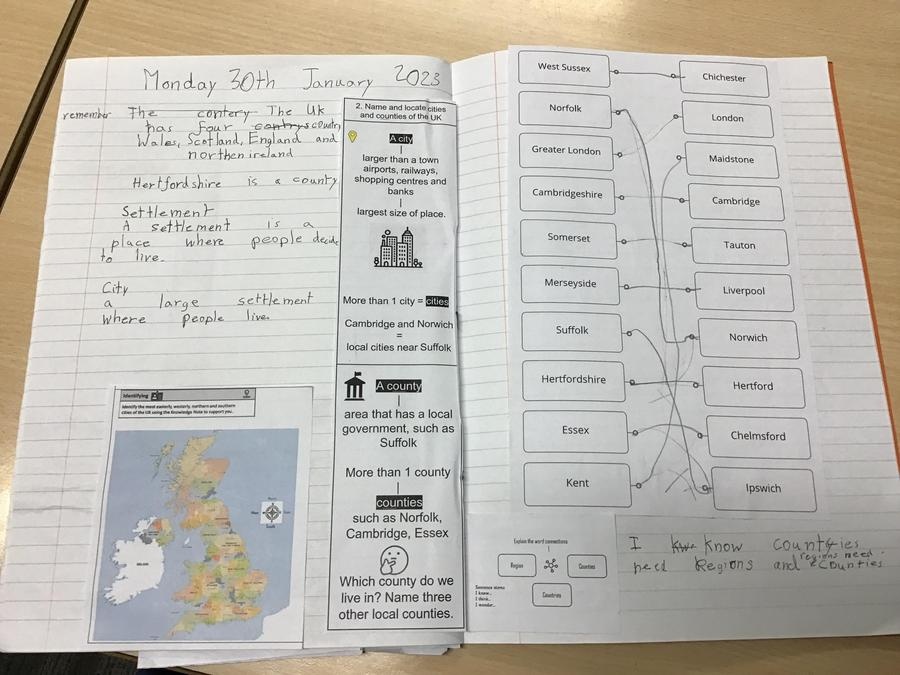 Monday 30th January 2023
remember The contery The Uk
has four contrys country
Wales, Scotland, England and
northen ireland
Hertfordshire is a county
Settlement
A settlement is a
place where people decide
to live.
City
a large settlement
where people live.
Identifying
Identify the most easterly, westerly, northern and southern
cities of the UK using the Knowledge Note to support you.
2. Name and locate cities
and counties of the UK
A city
larger than a town
airports, railways,
shopping centres and
banks
largest size of place.
More than 1 city = cities
Cambridge and Norwich
=
local cities near Suffolk
A county
area that has a local
government, such as
Suffolk
More than 1 county
counties
such as Norfolk,
Cambridge, Essex
Which county do we
live in? Name three
other local counties.
West Sussex
Norfolk
Greater London
Cambridgeshire
Somerset
Merseyside
Suffolk
Hertfordshire
Essex
Kent
Chichester
London
Maidstone
Cambridge
Tauton
Liverpool
Norwich
Hertford
Chelmsford
Ipswich
Explain the word connections
Region
Counties
Countries
Sentence stems:
I know...
I think...
I wonder...
I kw know counties
need Regions and regions need
counties